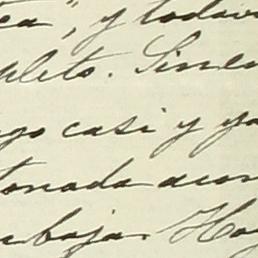 ea", y todavi
pleto. Sinem
go casi y ya
tonada acom
abaja. Hoy